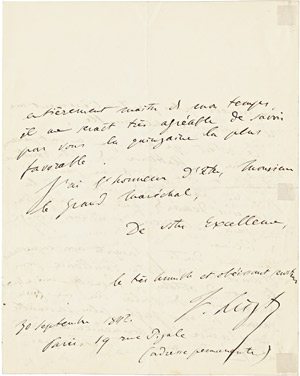 entièrement maître de mon temps,
il me serait très agréable de savoir
par vous la quinzaine la plus
favorable.
J'ai l'honneur d'être, Monsieur
le Grand Maréchal,
De votre Excellence,
le très humble et obéissant serviteur
F. Liszt
30 septembre 1842.
Paris, 19 rue Pigale
(adresse permanente)